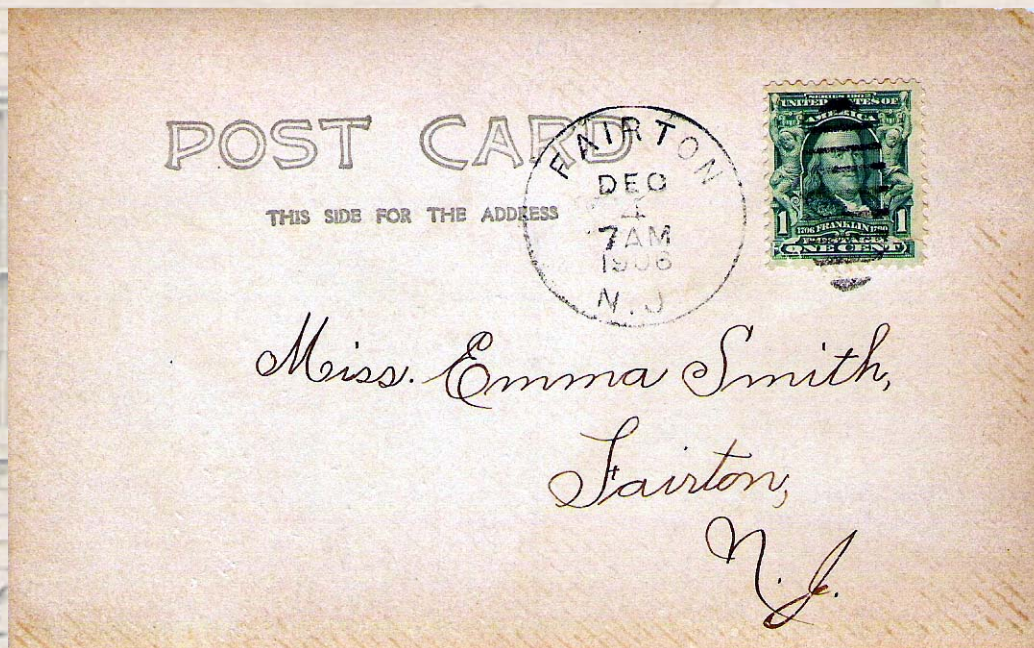 POST CARD
THIS SIDE FOR THE ADDRESS
FAIRTON
DEC
4
7 AM
1906
N.J.
SERIES 1902
UNITED STATES OF
AMERICA
1 1
1706 FRANKLIN 1790
POSTAGE
ONE CENT
Miss. Emma Smith,
Fairton,
N.J.